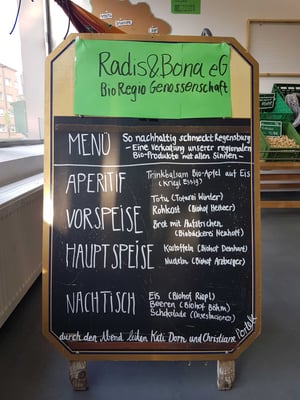 Radis&Bona eG
BioRegio Genossenschaft
MENÜ
So nachhaltig schmeckt Regensburg
– Eine Verkostung unserer regionalen
Bio-Produkte mit allen Sinnen –
APERITIF
Trinkbalsam Bio-Apfel auf Eis
VORSPEISE
Tofu
Rohkost (Biohof
Brot mit Aufstrichen
(Biobäckerei Neuhoff)
HAUPTSPEISE
Kartoffeln (Biohof
Nudeln (Biohof
NACHTISCH
Eis (Biohof
Beeren (Biohof Böhm)
Schokolade
durch den Abend leiten Kati Dorn und Christiane